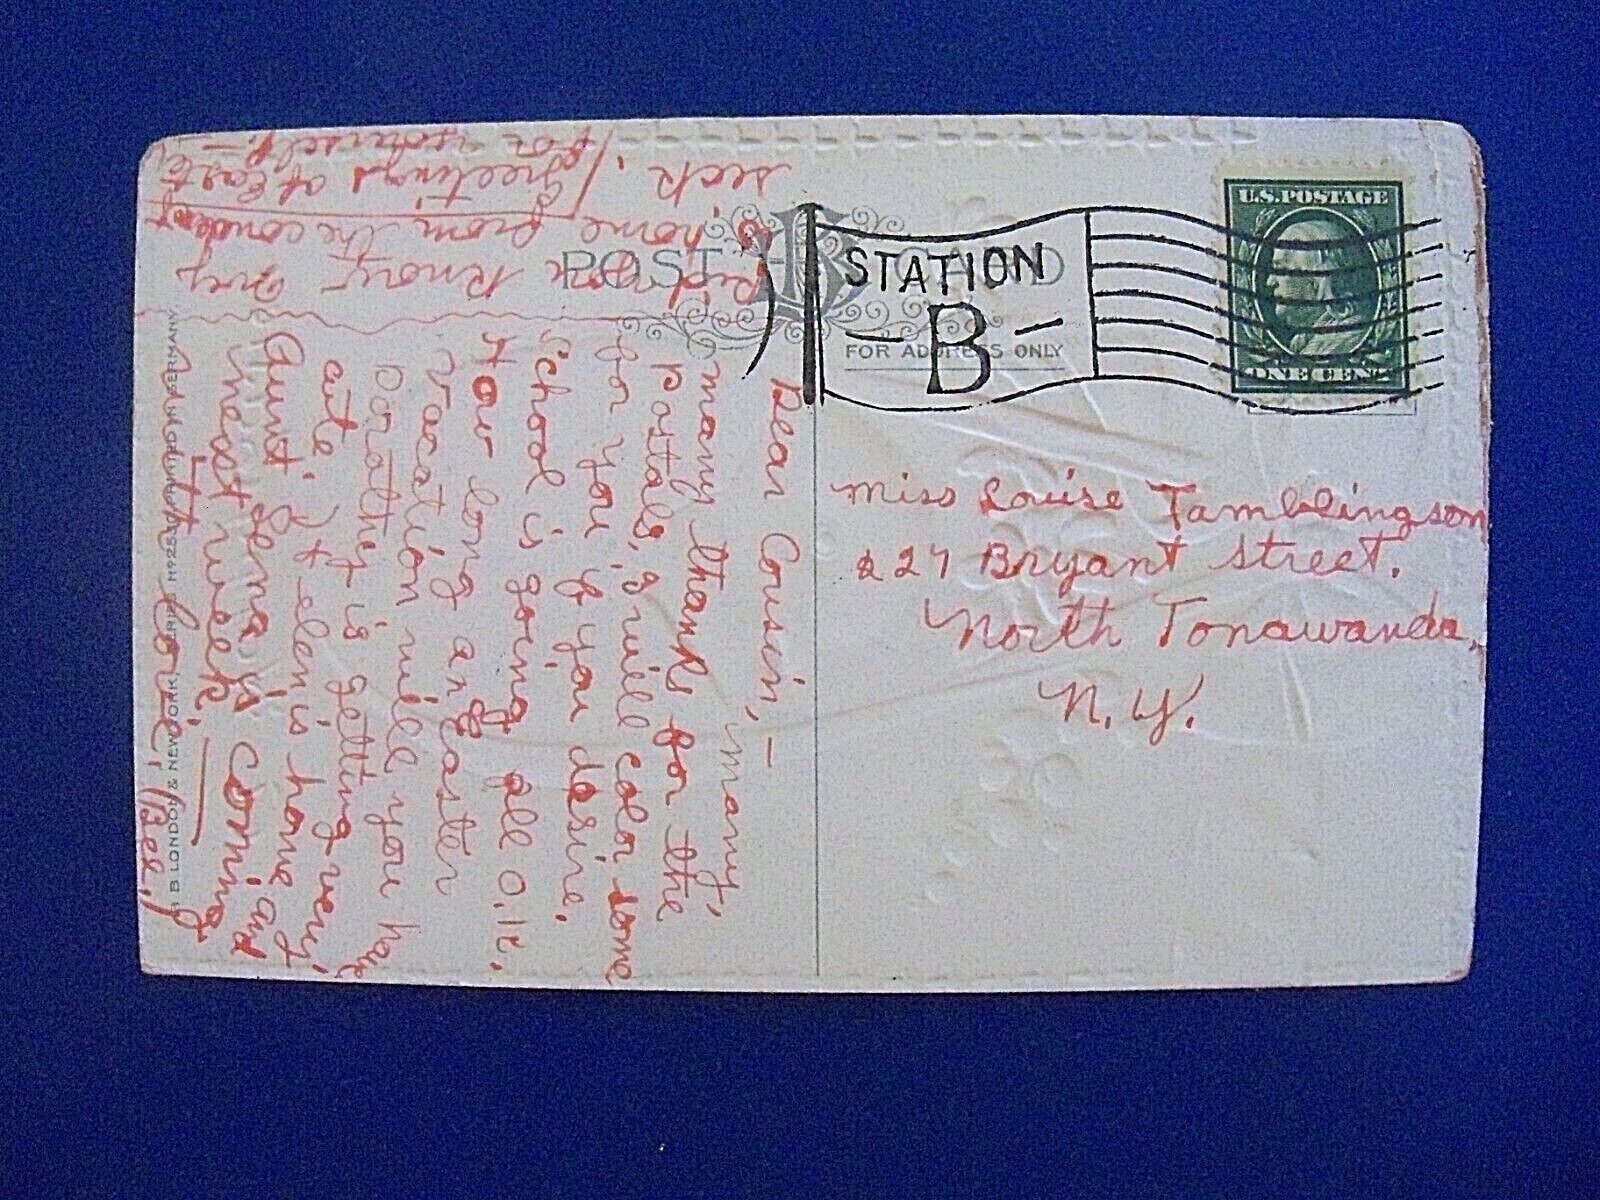 POST CARD
FOR ADDRESS ONLY
STATION
- B -
U.S. POSTAGE
ONE CENT
Miss Louise Tamblingson
227 Bryant Street.
North Tonawanda,
N.Y.
Dear Cousin,-
many,
many thanks for the
postals, I will color some
for you, if you desire.
School is going all O.K.
How long an Easter
Vacation will you have
Dorothy is getting very
cute. Helen is home and
Aunt Lena is coming
next week.
With love,
Bee.
home from the
sick.
Greetings of Easter
for yourself.-
B LONDON & NEW YORK, SERIES Nº 25 PRINTED IN GERMANY.